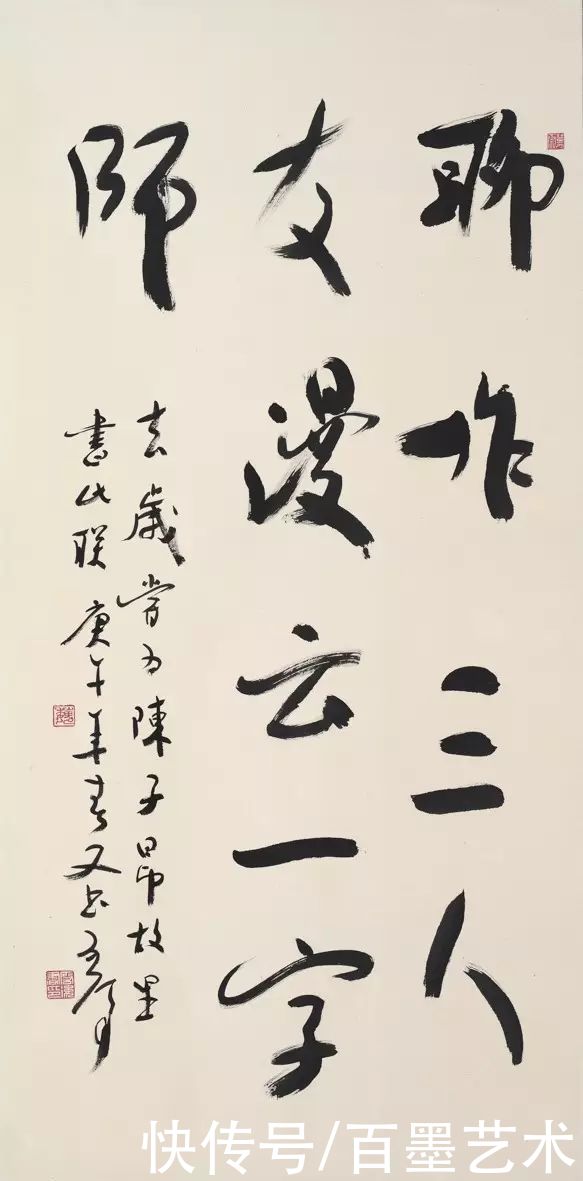 聊作三人
友漫云一字
師
去歲嘗为陳子昂故里
書此联庚午年春又书
快传号/百墨艺术